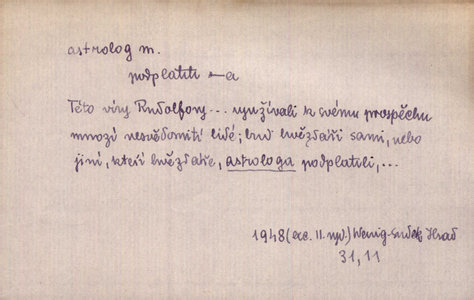 astrolog m.
podplatiti -a
Této víry Rudolfovy... využívali k svému prospěchu
mnozí nesvědomití lidé; buď hvězdáři sami, nebo
jiní, kteří hvězdáře, astrologa podplatili,...
1948 (exc. II. vyd.) Wenig- Hrad
31, 11